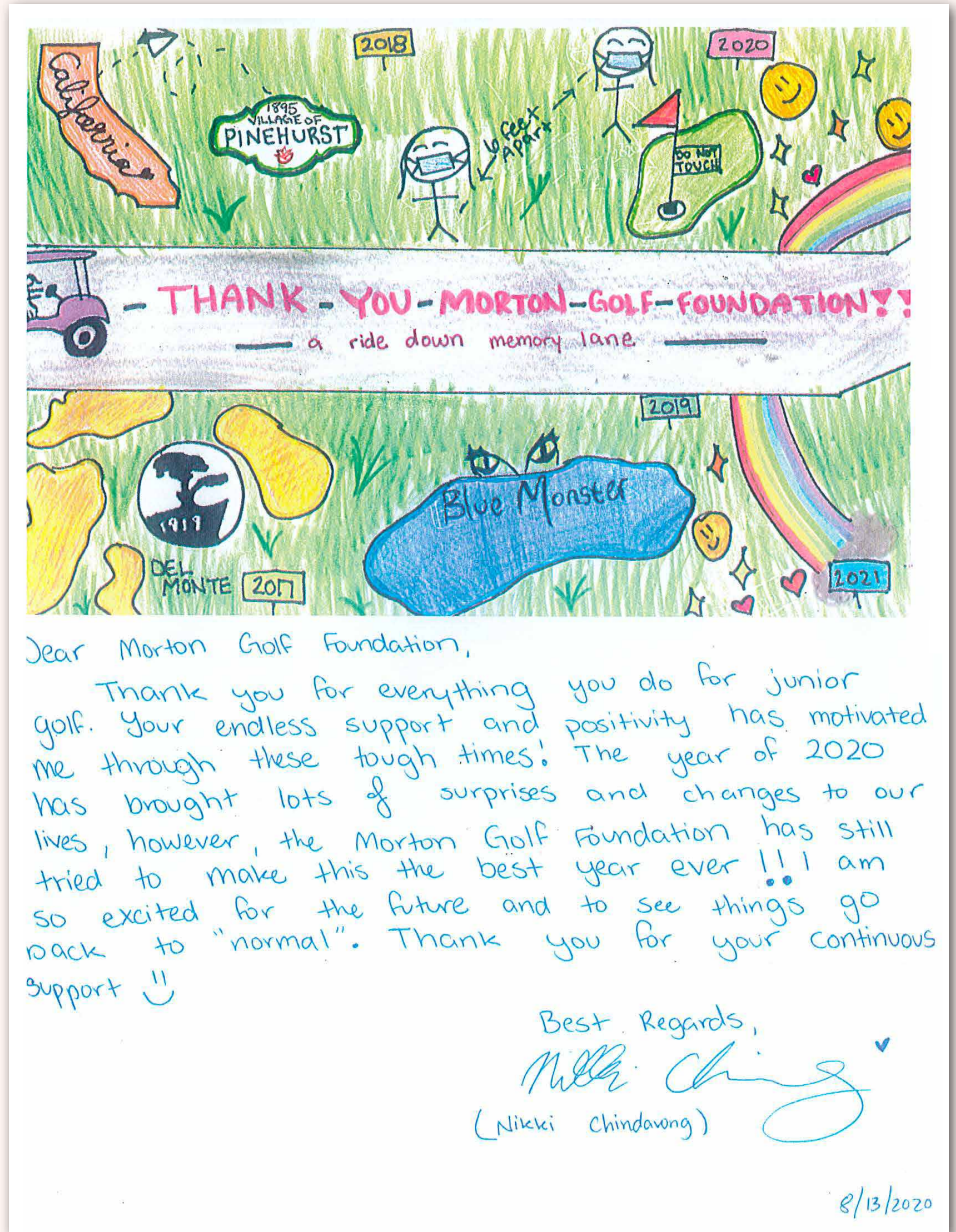 California
2018
2020
1895
VILLAGE OF
PINEHURST
6 feet
apart
DO NOT
TOUCH
- THANK - YOU - MORTON - GOLF - FOUNDATION!!
a ride down memory lane
2019
Blue Monster
1919
DEL
MONTE
2017
2021
Dear Morton Golf Foundation,
Thank you for everything you do for junior
golf. Your endless support and positivity has motivated
me through these tough times! The year of 2020
has brought lots of surprises and changes to our
lives, however, the Morton Golf Foundation has still
tried to make this the best year ever!!! I am
so excited for the future and to see things go
back to "normal". Thank you for your continuous
support
Best Regards,
(Nikki Chindavong)
8/13/2020